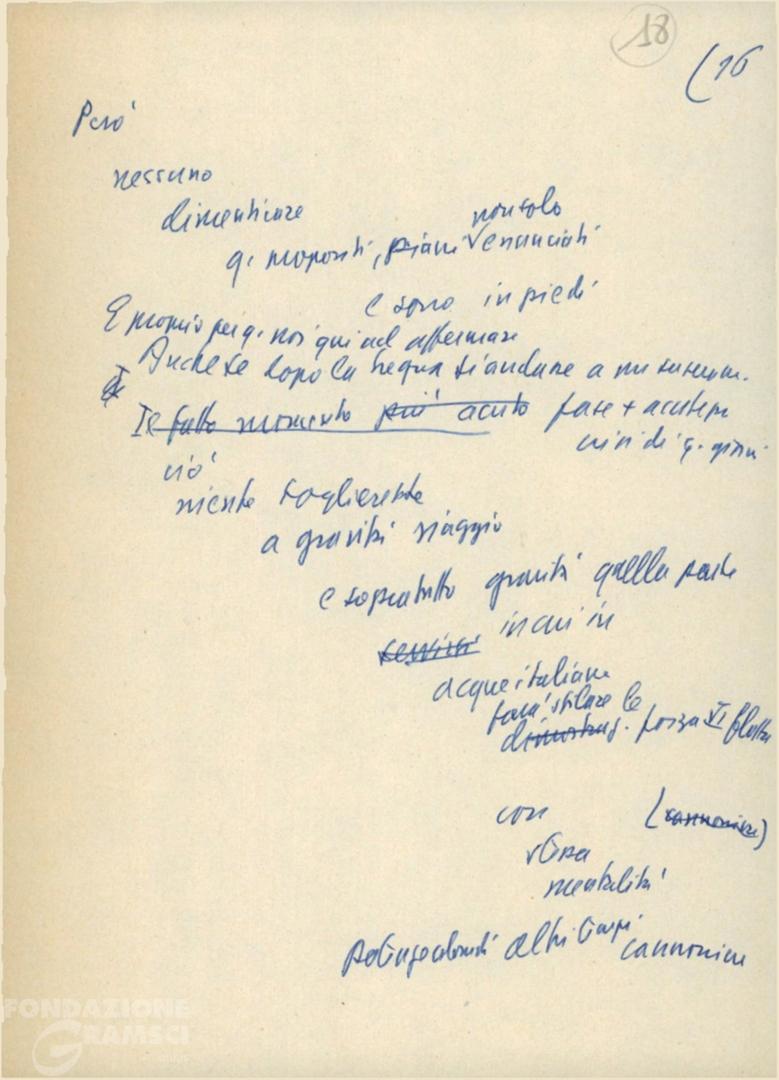 18
(16
Però
nessuno
dimenticare
non solo
q. propositi, piani √ enunciati
e sono in piedi
E proprio per q. noi qui ad affermare
Anche se dopo la tregua si andasse a
Il fatto momento più acuto fase + acuta
crisi di q. giorni
ciò
niente toglierebbe
a gravità viaggio
e sopratutto gravità quella parte
in cui in
acque italiane
farà sfilare le
forza VI flotta
con (cannoniere)
stessa
mentalità
altri tempi cannoniere
FONDAZIONE
GRAMSCI